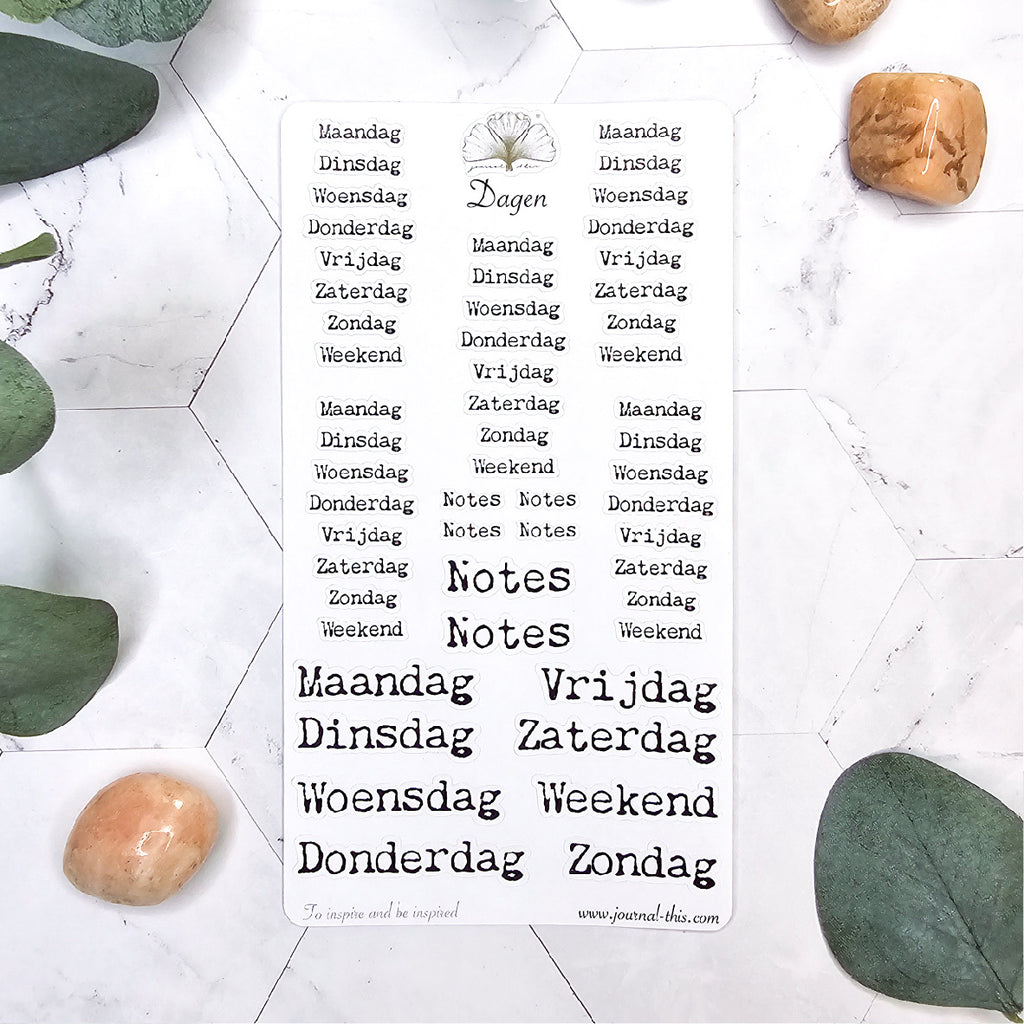 Maandag
Dinsdag
Woensdag
Donderdag
Vrijdag
Zaterdag
Zondag
Weekend
Maandag
Dinsdag
Woensdag
Donderdag
Vrijdag
Zaterdag
Zondag
Weekend
journal this
Dagen
Maandag
Dinsdag
Woensdag
Donderdag
Vrijdag
Zaterdag
Zondag
Weekend
Notes Notes
Notes Notes
Notes
Notes
Maandag
Dinsdag
Woensdag
Donderdag
Vrijdag
Zaterdag
Zondag
Weekend
Maandag
Dinsdag
Woensdag
Donderdag
Vrijdag
Zaterdag
Zondag
Weekend
Maandag Vrijdag
Dinsdag Zaterdag
Woensdag Weekend
Donderdag Zondag
To inspire and be inspired www.journal-this.com